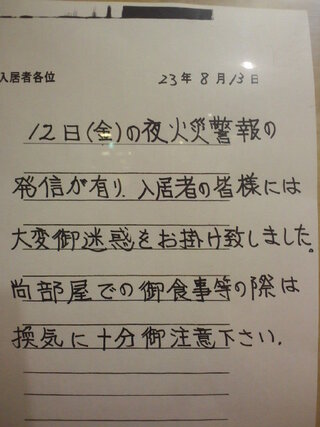 入居者各位
23年8月13日
12日(金)の夜火災警報の
発信が有り、入居者の皆様には
大変御迷惑をお掛け致しました。
尚部屋での御食事等の際は
換気に十分御注意下さい.